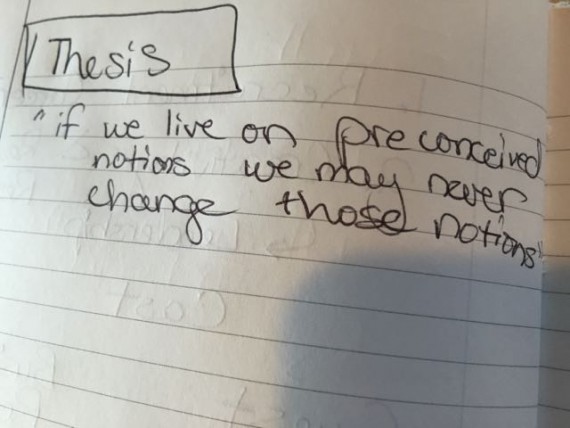 Thesis
"if we live on preconceived
notions we may never
change those notions"